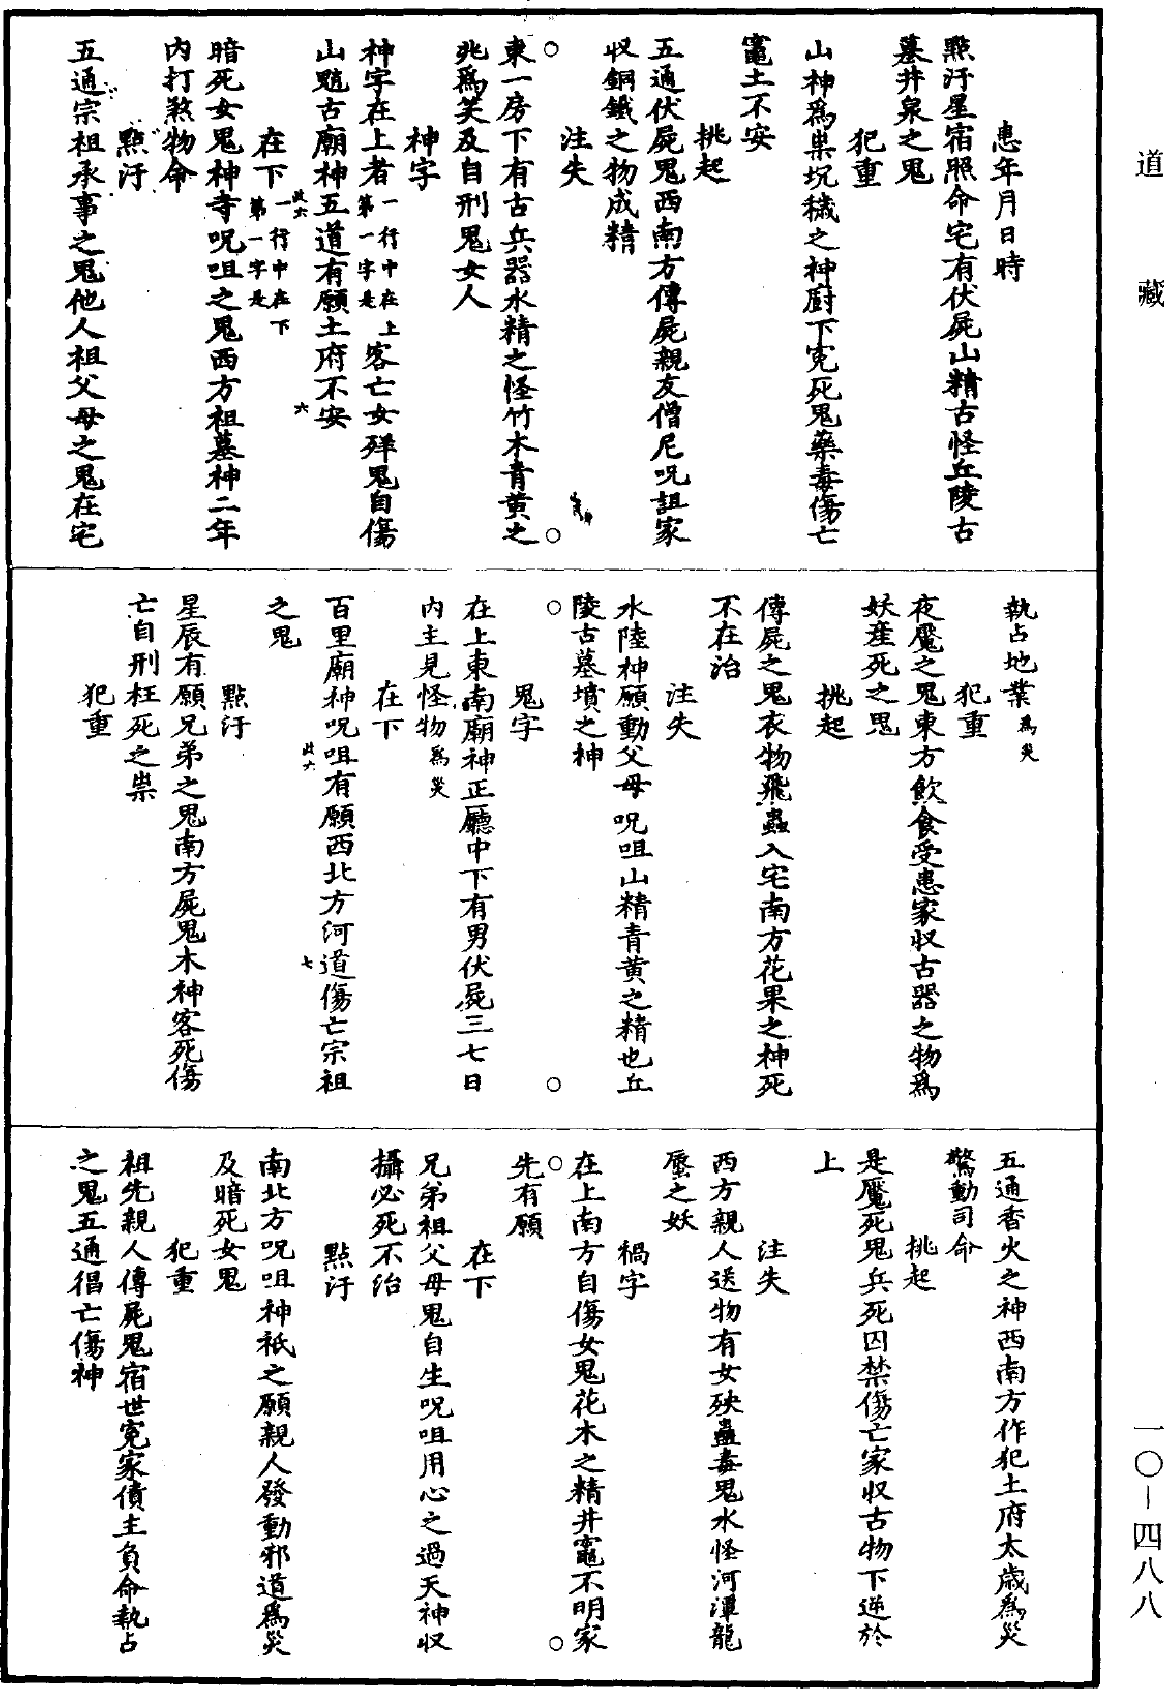 道藏
患年月日時
點汙星宿照命宅有伏屍山精古怪丘陵古
墓井泉之鬼
犯重
山神為巢坑穢之神廚下冤死鬼藥毒傷亡
竈土不安
挑起
五通伏屍鬼西南方傳屍親友僧尼呪詛家
收銅鐵之物成精
注失
東一房下有古兵器水精之怪竹木青黃之
兆為笑及自刑鬼女人
神字
神字在上者一行中在上第一字是客亡女殍鬼自傷
山魈古廟神五道有願土府不安
此六
六
在下一行中在下第一字是
暗死女鬼神寺呪咀之鬼西方祖墓神二年
內打煞物命
點汙
五通宗祖承事之鬼他人祖父母之鬼在宅
執占地業為災
犯重
夜魘之鬼東方飲食受患家收古器之物為
妖產死之鬼
挑起
傳屍之鬼衣物飛蟲入宅南方花果之神死
不在治
注失
水陸神願動父母呪咀山精青黃之精也丘
陵古墓墳之神
鬼字
在上東南廟神正廳中下有男伏屍三七日
內主見怪物為災
在下
百里廟神呪咀有願西北方河道傷亡宗祖
之鬼
此六
七
點汙
星辰有願兄弟之鬼南方屍鬼木神客死傷
亡自刑枉死之祟
犯重
五通香火之神西南方作犯土府太歲為災
驚動司命
挑起
是魘死鬼兵死囚禁傷亡家收古物下逆於
上
注失
西方親人送物有女殃蠱毒鬼水怪河潭龍
蜃之妖
禍字
在上南方自傷女鬼花木之精井竈不明家
先有願
在下
兄弟祖父母鬼自生呪咀用心之過天神收
攝必死不治
點汙
南北方呪咀神祇之願親人發動邪道為災
及暗死女鬼
犯重
祖先親人傳屍鬼宿世冤家債主負命執占
之鬼五通猖亡傷神
一〇-四八八